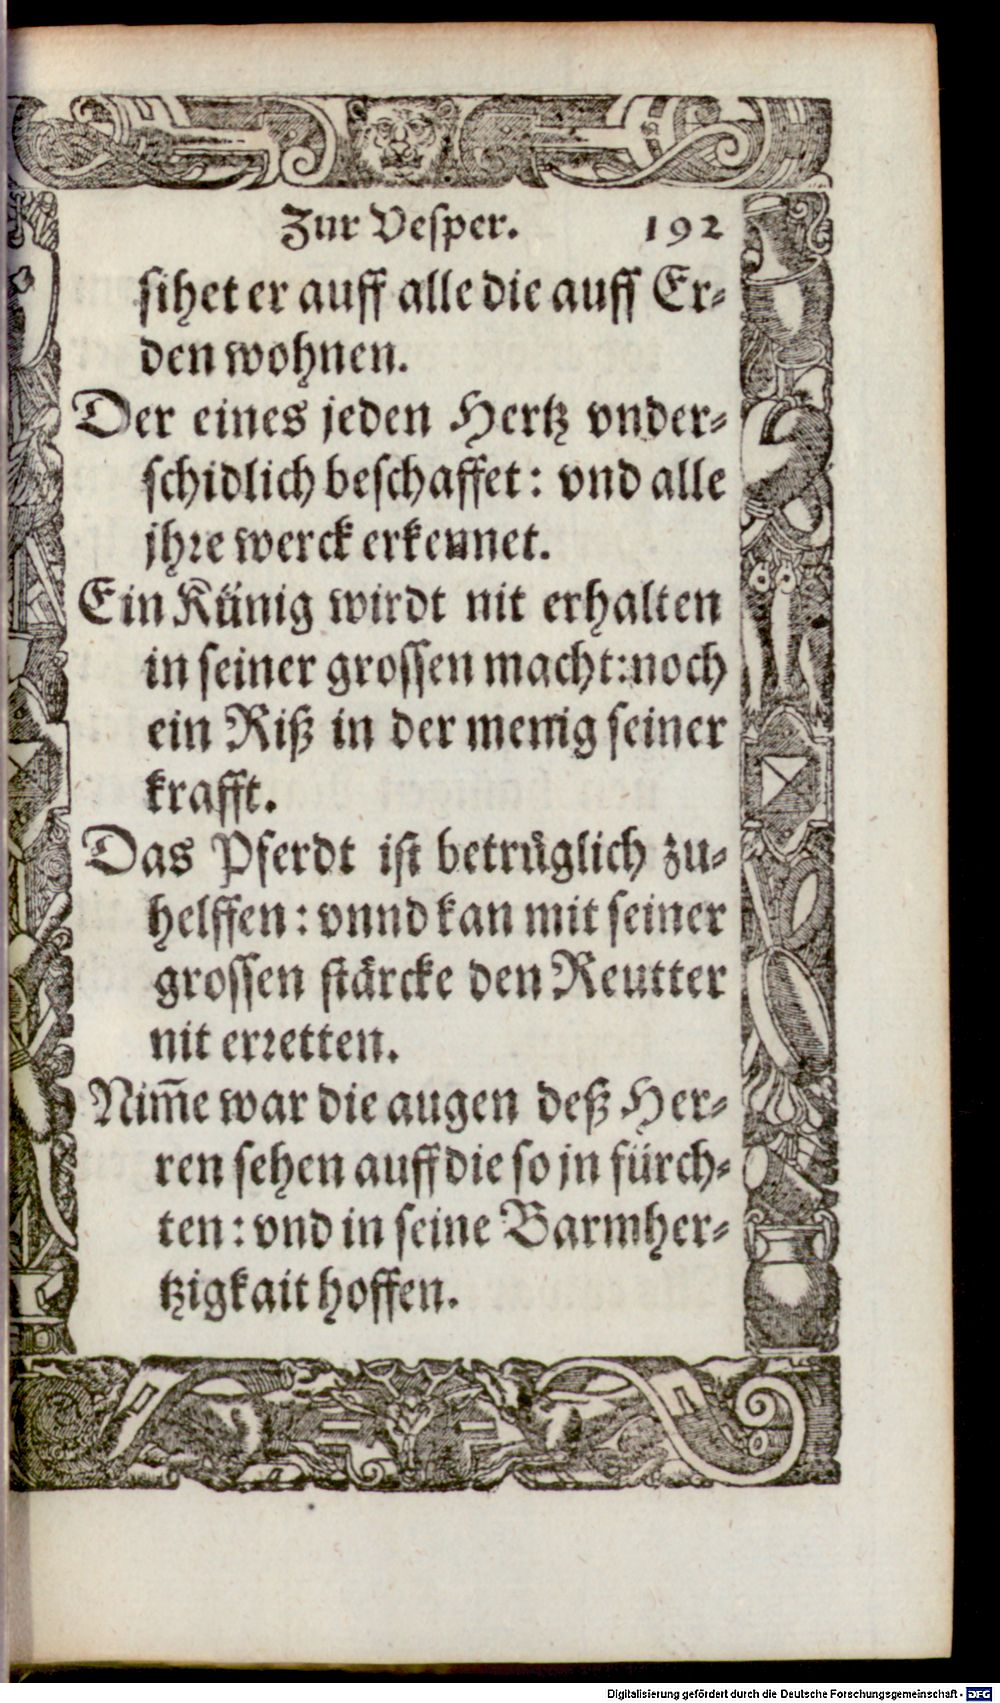 Zur Vesper. 192
sihet er auff alle die auff Er-
den wohnen.
Der eines jeden Hertz vnder-
schidlich beschaffet: vnd alle
jhre werck erkennet.
Ein Künig wirdt nit erhalten
in seiner grossen macht: noch
ein Riß in der menig seiner
krafft.
Das Pferdt ist betrüglich zu-
helffen: vnnd kan mit seiner
grossen stärcke den Reutter
nit erretten.
Nim̃e war die augen deß Her-
ren sehen auff die so jn fürch-
ten: vnd in seine Barmher-
tzigkait hoffen.
Digitalisierung gefördert durch die Deutsche Forschungsgemeinschaft - DFG